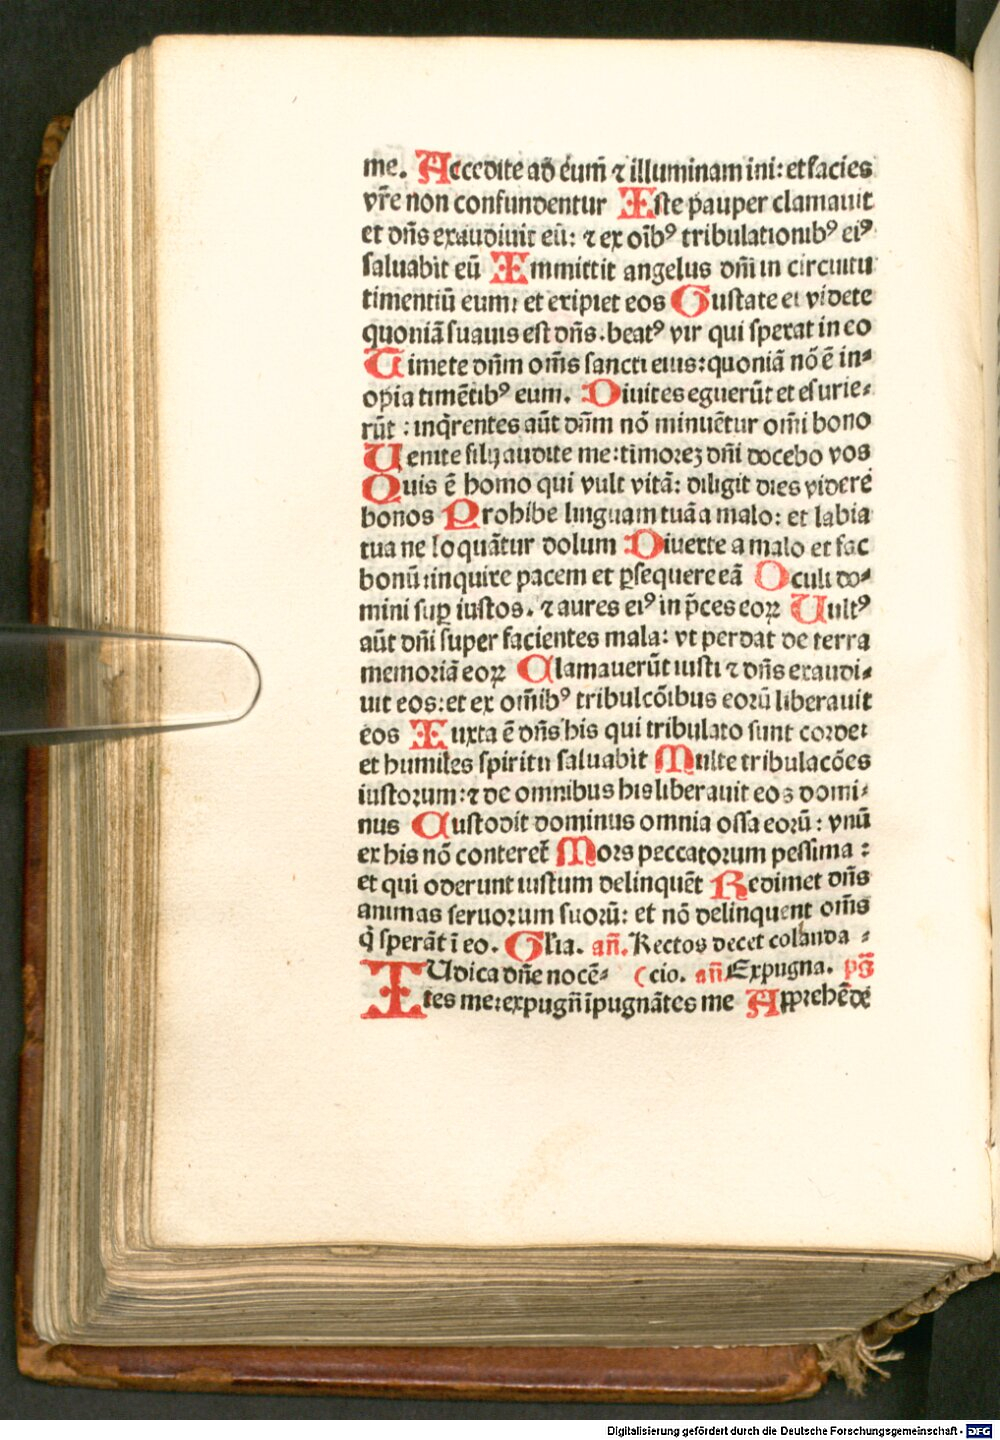 me. Accedite ad eum̄ ⁊ illuminamini: et facies
vr̄e non confundentur Iste pauper clamauit
et dn̄s exaudiuit eū: ⁊ ex oīb⁹ tribulationib⁹ ei⁹
saluabit eū Immittit angelus dn̄i in circuitu
timentiū eum: et eripiet eos Gustate et videte
quoniā suauis est dn̄s. beat⁹ vir qui sperat in eo
Timete dn̄m om̄s sancti eius: quoniā nō ē in⸗
opia timētib⁹ eum. Diuites eguerūt et esurie⸗
rūt : inq̄rentes aūt dn̄m nō minuētur om̄i bono
Uenite filij audite me: timorez dn̄i docebo vos
Quis ē homo qui vult vitā: diligit dies videre
bonos Prohibe linguam tuā a malo: et labia
tua ne loquātur dolum Diuerte a malo et fac
bonū: inquire pacem et ꝑsequere eā Oculi do⸗
mini suꝑ iustos. ⁊ aures ei⁹ in p̄ces eoꝝ Uult⁹
aūt dn̄i super facientes mala: vt perdat de terra
memoriā eoꝝ Clamauerūt iusti ⁊ dn̄s exaudi⸗
uit eos: et ex om̄ib⁹ tribulcōibus eorū liberauit
eos Iuxta ē dn̄s his qui tribulato sunt corde:
et humiles spiritu saluabit Multe tribulacōes
iustorum: ⁊ de omnibus his liberauit eos domi⸗
nus Custodit dominus omnia ossa eorū: vnū
ex his nō conteret̄ Mors peccatorum pessima :
et qui oderunt iustum delinquēt Redimet dn̄s
animas seruorum suorū: et nō delinquent om̄s
q̄ sperāt ī eo. Gl'ia. an̄. Rectos decet colauda ⸗
IUdica dn̄e nocē⸗ (cio. an̄ Expugna. ps̄
tes me: expugn̄ īpugnātes me Apprehēde
Digitalisierung gefördert durch die Deutsche Forschungsgemeinschaft - DFG